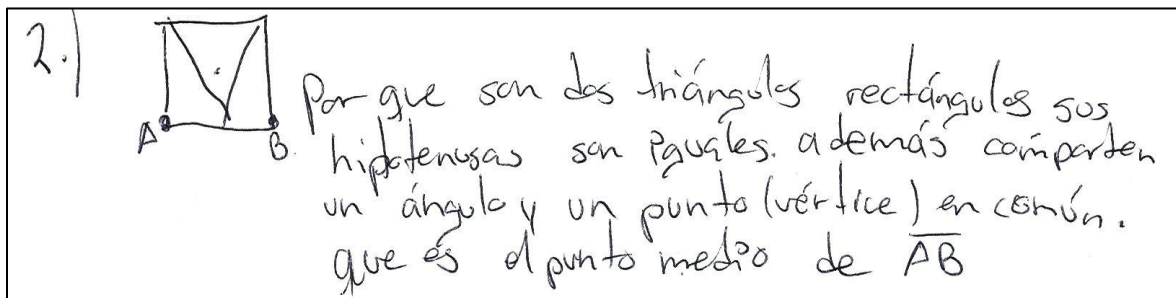 2.)
A
B.
Porque son dos triángulos rectángulos sus
hipotenusas son iguales. además comparten
un ángulo y un punto (vértice) en común.
que es el punto medio de AB